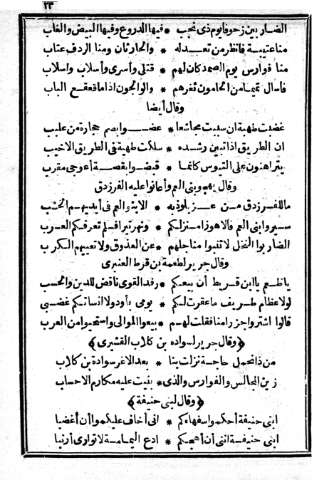 ٢٣
الضاربين زحوفا يوم ذى نجب * فيها الدروع وفيها البيض والغاب
منا عتيبة فانظر من تعدله * والحارثان ومنا الردف عتاب
منا فوارس يوم الصمد كان لهم * قتلى وأسرى وأسلاب وأسلاب
فاسأل تميما من الحامون ثغرهم * والوالجون اذا ما قعقع الباب
وقال أيضا
غضبت طهية ان سببت مجاشعا * عضوا بصم حجارة من عليب
ان الطريق اذا تبين رشده * سلكت طهية فى الطريق الاخيب
يتراهنون على التيوس كأنما * قبضوا بقصة أعوجى مقرب
وقال يهجو بنى العم وأعانوا عليه الفرزدق
ما للفرزدق من عز يلوذ به * الا بنو العم فى أيديهم الخشب
سيروا بنى العم فالاهواز منزلكم * ونهر تيرا فلم تعرفكم العرب
الضاربو النخل لا تنبو مناجلهم * عن العذوق ولا تعييهم الكرب
وقال جرير لطعمة بن قرط العنبرى
يا طعم يا ابن قريط ان بيعكم * رفد القوى ناقض للدين والحسب
لولا عظام طريف ما غفرت لكم * يومى بأود ولا أنسأتكم غضبى
قالوا اشتروا جزرا منا فقلت لهم * بيعوا الموالى واستحيوا من العرب
﴿وقال جرير لسوادة بن كلاب القشيرى﴾
من ذا نحمل حاجة نزلت بنا * بعد الاغر سوادة بن كلاب
زين المجالس والفوارس والذى * بنيت عليه مكارم الاحساب
﴿وقال لبنى حنيفة﴾
ابنى حنيفة أحكموا سفهاءكم * انى أخاف عليكموا أن أغضبا
ابنى حنيفة اننى أن أهجكم * ادع اليمامة لا توارى أرنبا